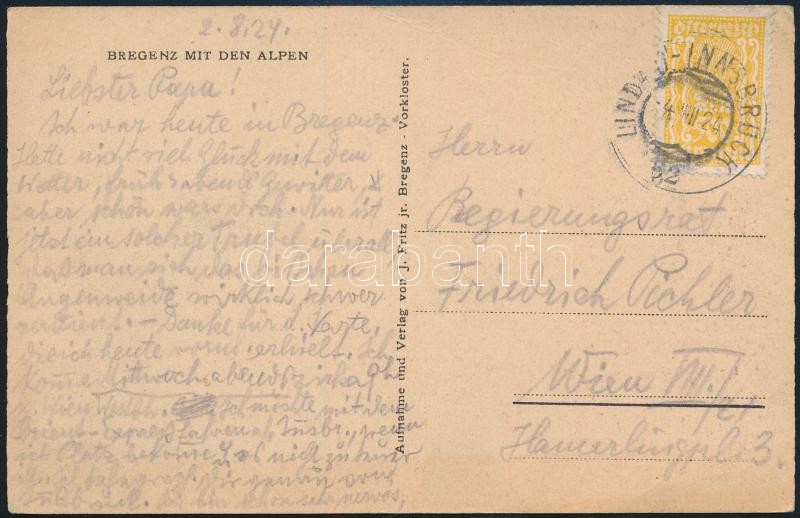 2.8.24.
BREGENZ MIT DEN ALPEN
Liebster Papa!
Ich war heute in Bregenz.
Hatte nicht viel Glück mit dem
Wetter, früh & abends Gewitter,
aber schön war's doch. Nur ist
jetzt ein solcher Trubel überall
daß man sich das bischen
Augenweide wirklich schwer
verdient. – Danke für d. Karte,
die ich heute vorm. erhielt. Ich
komme Mittwoch abends zirka 9h
Wien Westb. Ich möchte mit dem
Orient-express fahren ab Innsbr., wenn
ich Platz bekomme & es nicht zu teuer
Dir genau von
Innsbruck. Ich bin schon sehr nervös,
Aufnahme und Verlag von J. Fritz jr. Bregenz - Vorkloster.
LINDAU-INNSBRUCK
4.VIII.24
52
Österreich
Herrn
Regierungsrat
Friedrich Pichler
Wien VIII./
Hamerlingpl. 3.
darabanth